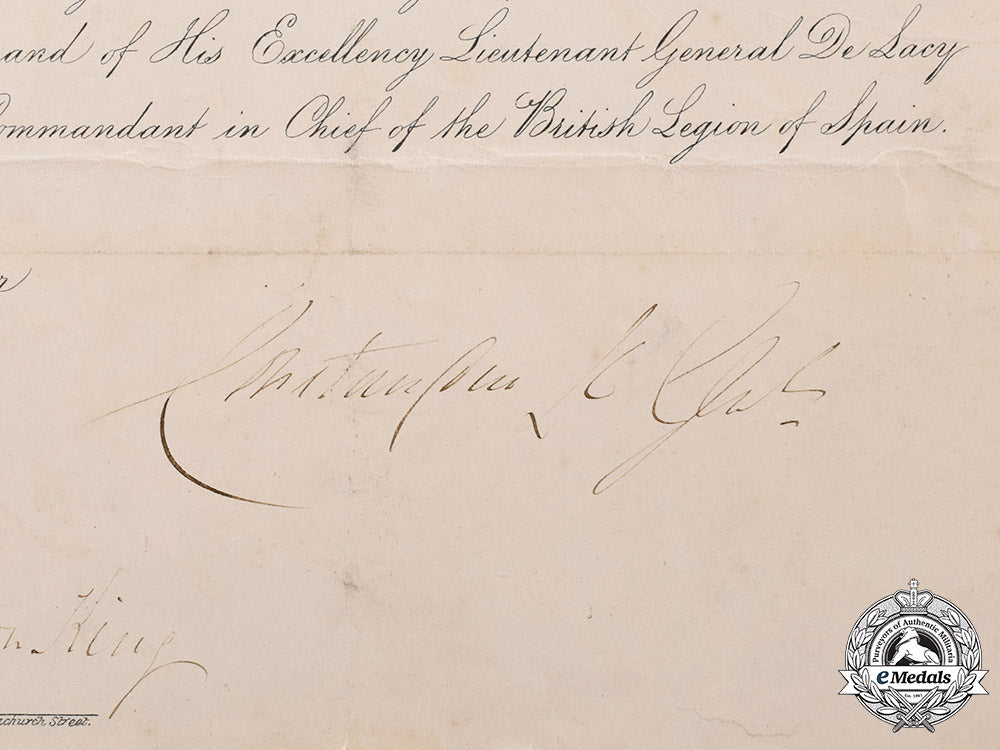 and of His Excellency Lieutenant General De Lacy
ommandant in Chief of the British Legion of Spain.
King
church Street.
Purveyors of Authentic Militaria
eMedals